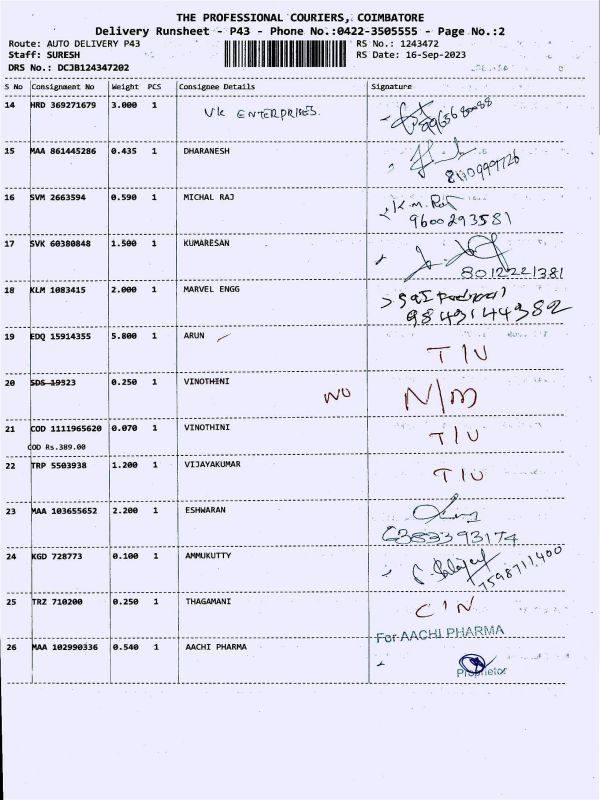 THE PROFESSIONAL COURIERS, COIMBATORE
Delivery Runsheet - P43 - Phone No.:0422-3505555 - Page No.:2
Route: AUTO DELIVERY P43 RS No.: 1243472
Staff: SURESH RS Date: 16-Sep-2023
DRS No.: DCJB124347202
S No Consignment No Weight PCS Consignee Details Signature
14 HRD 369271679 3.000 1 VK ENTERPRISES.
15 MAA 861445286 0.435 1 DHARANESH
16 SVM 2663594 0.590 1 MICHAL RAJ K.M. Raj
9600293581
17 SVK 60380848 1.500 1 KUMARESAN
8012221381
18 KLM 1083415 2.000 1 MARVEL ENGG
9843144382
19 EDQ 15914355 5.800 1 ARUN T/U
20 SDS 19323 0.250 1 VINOTHINI NO N/M
21 COD 1111965620 0.070 1 VINOTHINI T/U
COD Rs.389.00
22 TRP 5503938 1.200 1 VIJAYAKUMAR T/U
23 MAA 103655652 2.200 1 ESHWARAN
6383393174
24 KGD 728773 0.100 1 AMMUKUTTY
7598711400
25 TRZ 710200 0.250 1 THAGAMANI C/N
For AACHI PHARMA
26 MAA 102990336 0.540 1 AACHI PHARMA
Proprietor